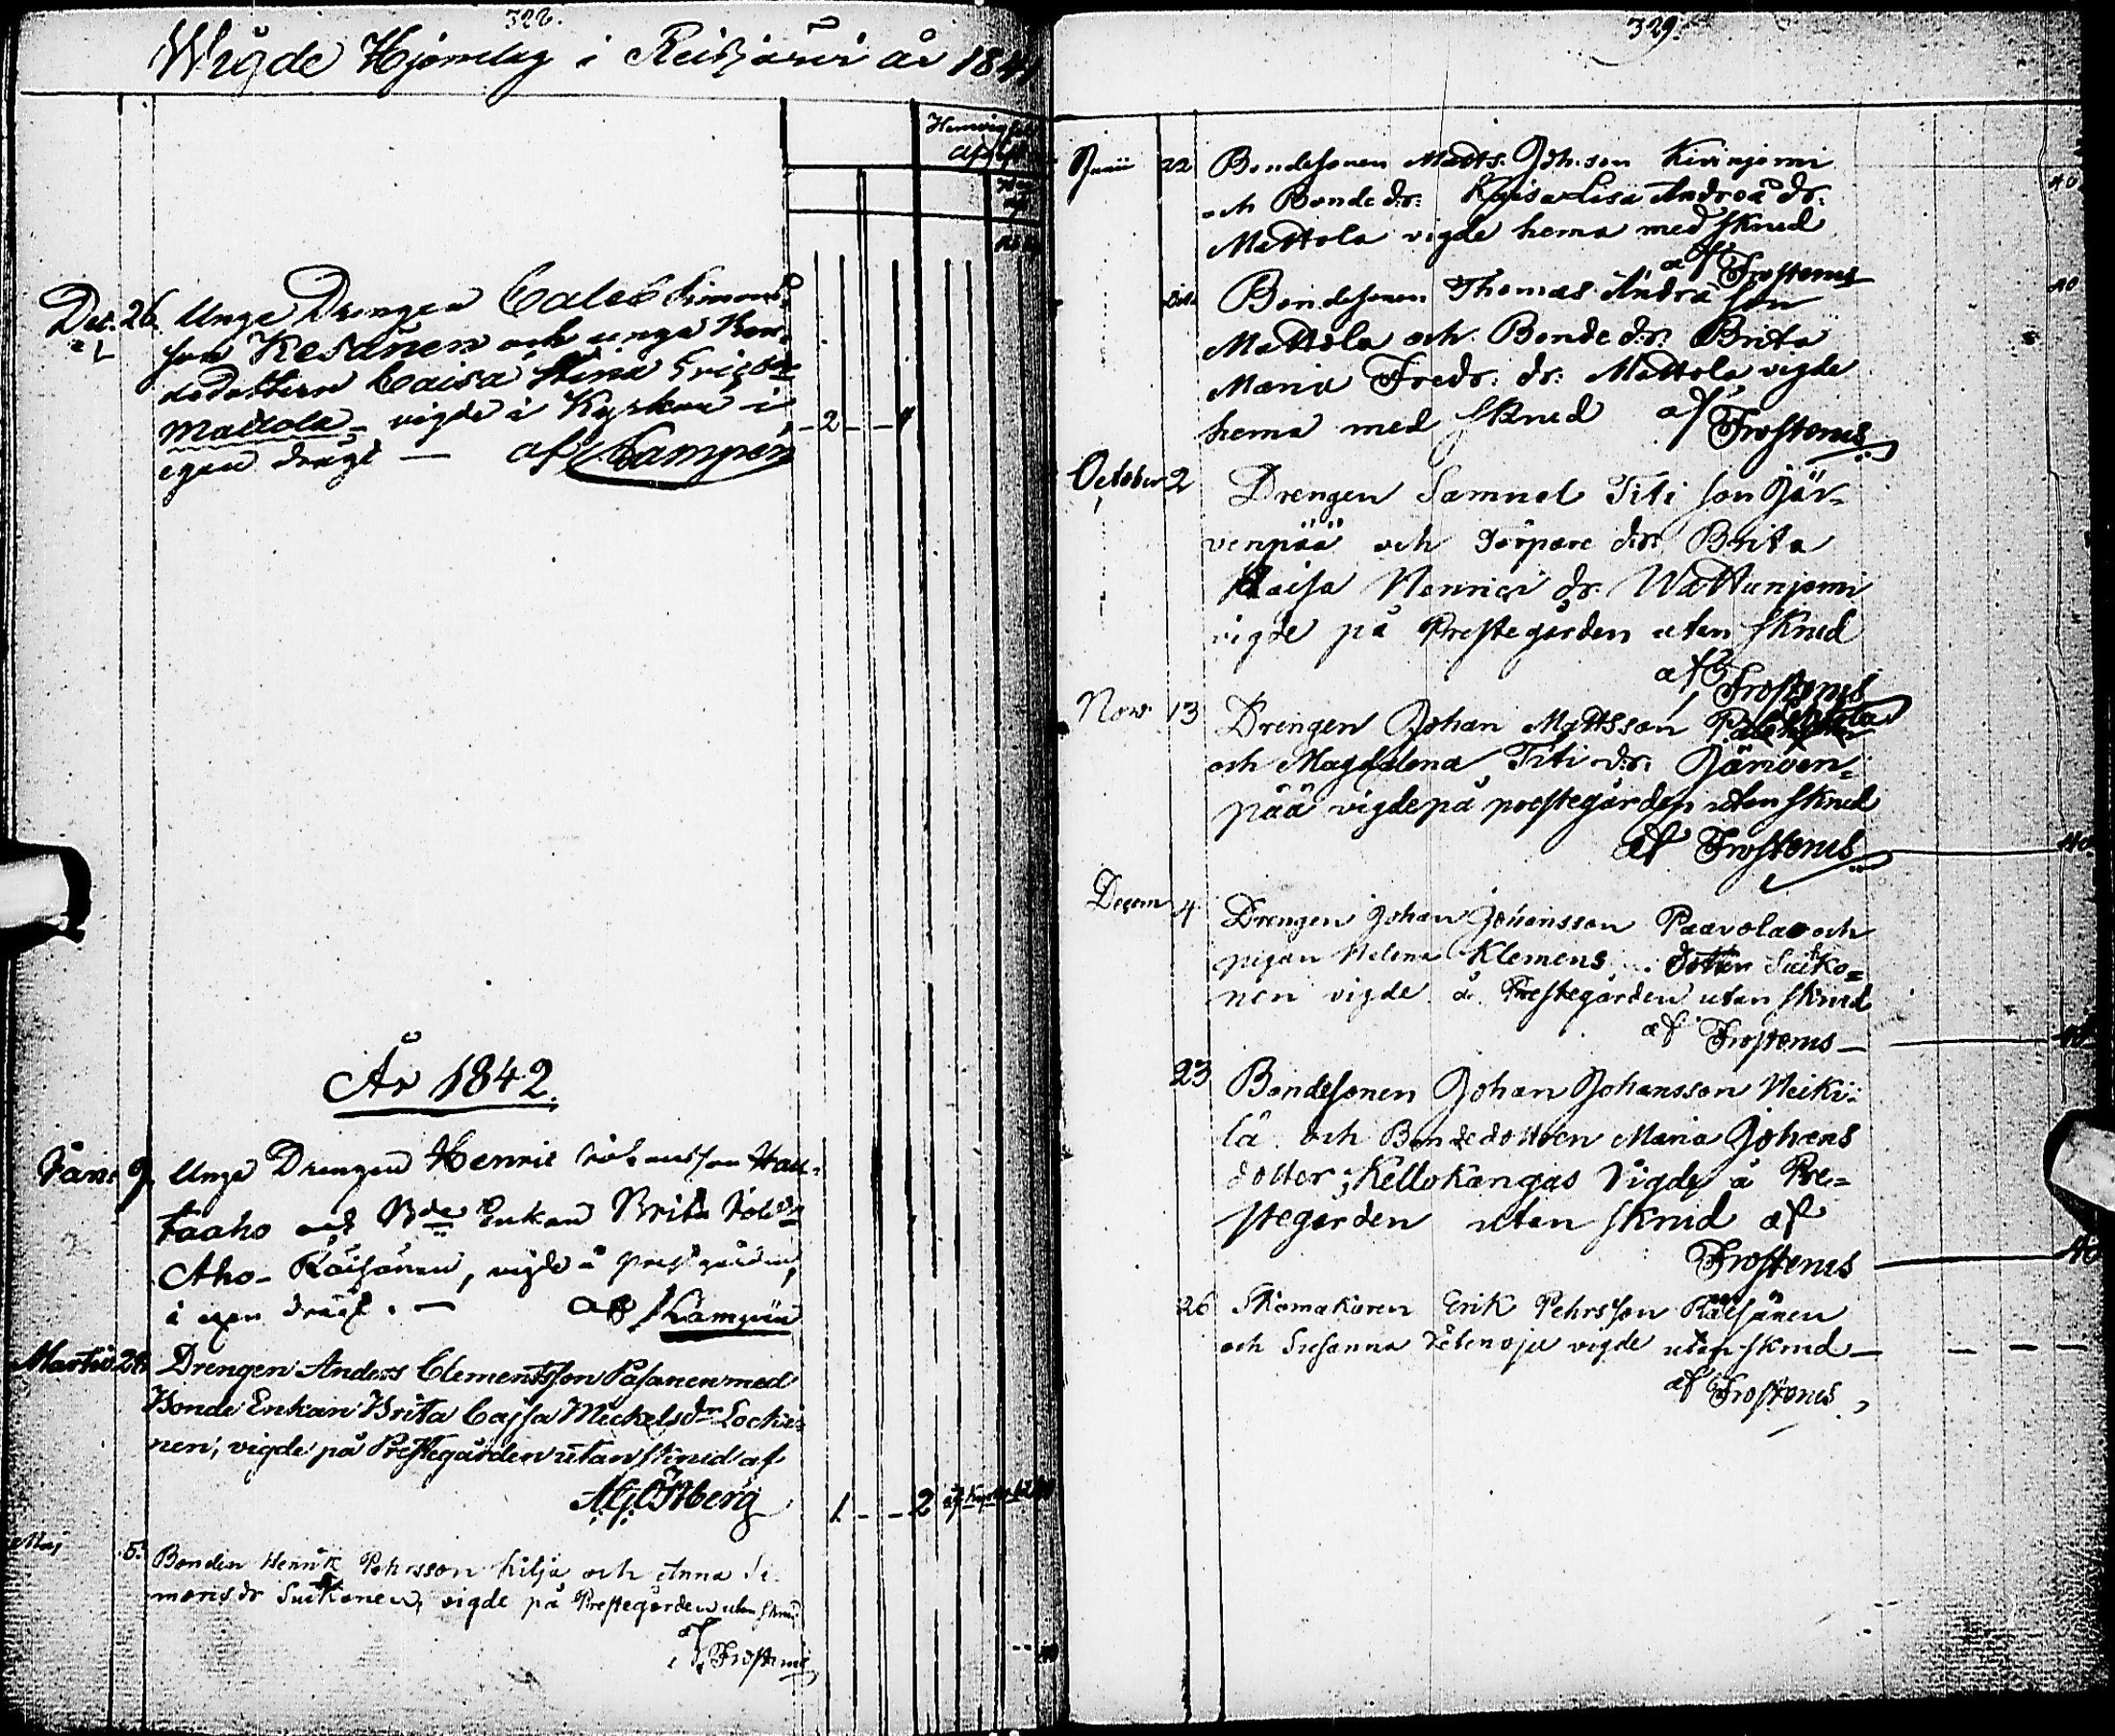 328.
Wigde Hjonelag i Reisjärvi år 1841
Dec. 26. Unge Drengen Caleb Simons
son Kesänen och unga Bon
dedottern Caisa Stina Ericsdr
Mattola - vigde i Kyrkan i
egen drägt — af Kampén
- 2 - - 4
År 1842.
Jan. 9. Unge Drengen Henric Johansson Hau-
taaho och Bde Enkan Brita
Aho- Räisänen, vigde å prestgården,
i egen drägt. — af Kampén
Martii 28. Drengen Anders Clementsson Pasanen med
Bonde Enkan Brita Cajsa Mickelsdr Locki-
nen, vigde på Prestegården utan skrud af
A.G. Östberg
1 - - 2
Maj 5. Bonden Henrik Pehrsson Kilja och Anna Si-
monsdr Suikonen, vigde på Prestegården utan skrud
af Frosterus
329.
Junii 22 Bondesonen Matts Joh.son Kivinjemi
och Bonde d:r: Kajsa Lisa Andreä dr:
Mattola vigde hema med skrud
af Frosterus
40
Bondesonen Thomas Andrä son
Mattola och Bonde d:r: Brita
Maria Fredr: dr: Mattola vigde
hema med skrud af Frosterus
40
October 2 Drengen Samuel Titi son Jär-
venpää och Torpare d:r: Brita
Kaisa Henrics dr: Wattunjemi
vigde på Prestegården utan skrud
af Frosterus
Nov. 13 Drengen Johan Mattsson
och Magdalena Titi d:r: Järven-
pää vigde på prestegården utan skrud
af Frosterus 40
Decem 4. Drengen Johan Johansson Paavola och
pigan Helena Klemens dotter Suiko=
nen vigde å Prestegården utan skrud
af Frosterus — 40
23 Bondesonen Johan Johansson Heiki-
lä och Bondedottren Maria Johans
dotter Kellokangas Vigde å Pre=
stegården utan skrud af
Frosterus 40
26 Skomakaren Erik Pehrsson Räisänen
och Susanna vigde utan skrud —
af Frosterus